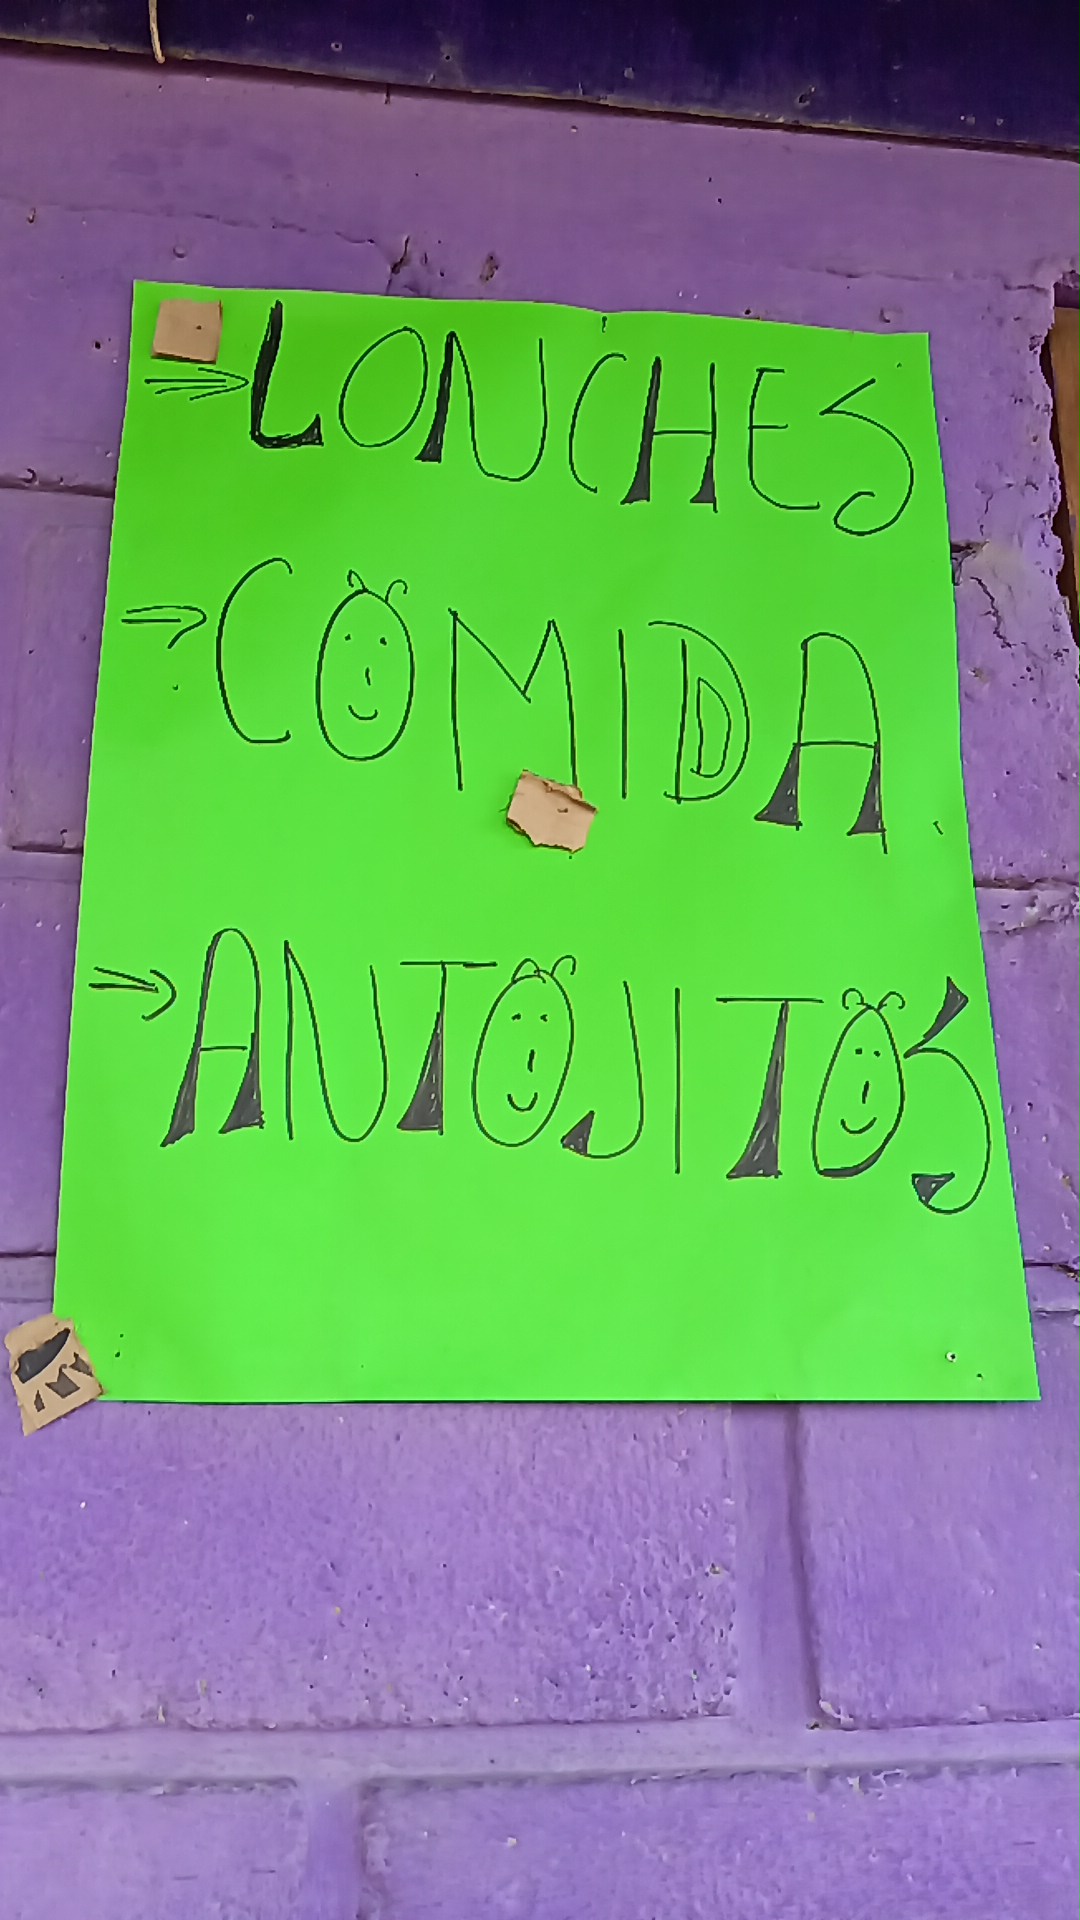 ⇒LONCHES
⇒COMIDA
⇒ANTOJITOS